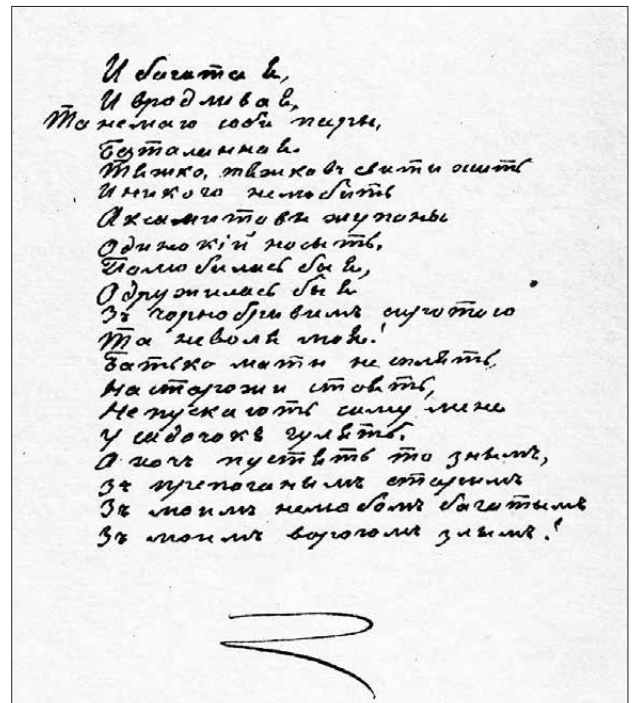 И богата я,
И вродлива я,
Та немаю соби пары,
Безталанна я.
Тяжко, тяжко въ свити жить
И никого нелюбить
Аксамитовы жупаны
Одинокій носыть.
Полюбилась бы я,
Одружилась бы я
Зъ чорнобривимъ сиротою
Та неволя моя!
Батько мати не сплять,
На сторожи стоять,
Не пускають саму мене
У садочокъ гулять.
А хочь пустять то знымъ,
Зъ препоганымъ старымъ
Зъ моимъ нелюбомъ багатымъ
Зъ моимъ ворогомъ злымъ!